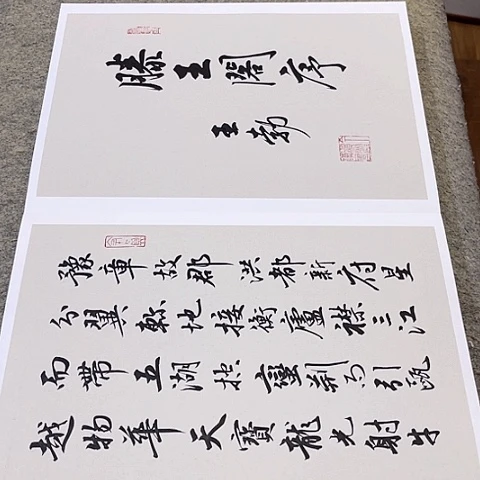 滕王閣序
王勃
豫章故郡洪都新府星
分翼軫地接衡廬襟三江
而帶五湖控蠻荊而引甌
越物華天寶龍光射牛